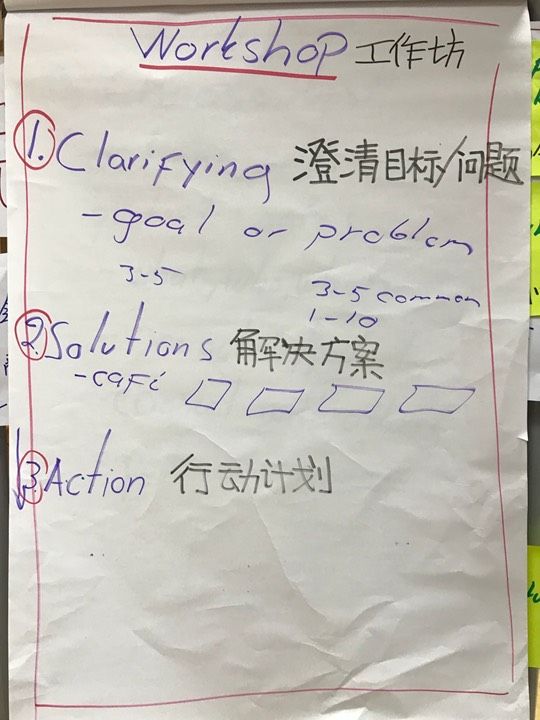 Workshop 工作坊
1. Clarifying 澄清目标/问题
- goal or problem
3-5
3-5 common
1-10
2. Solutions 解决方案
- café
3. Action 行动计划